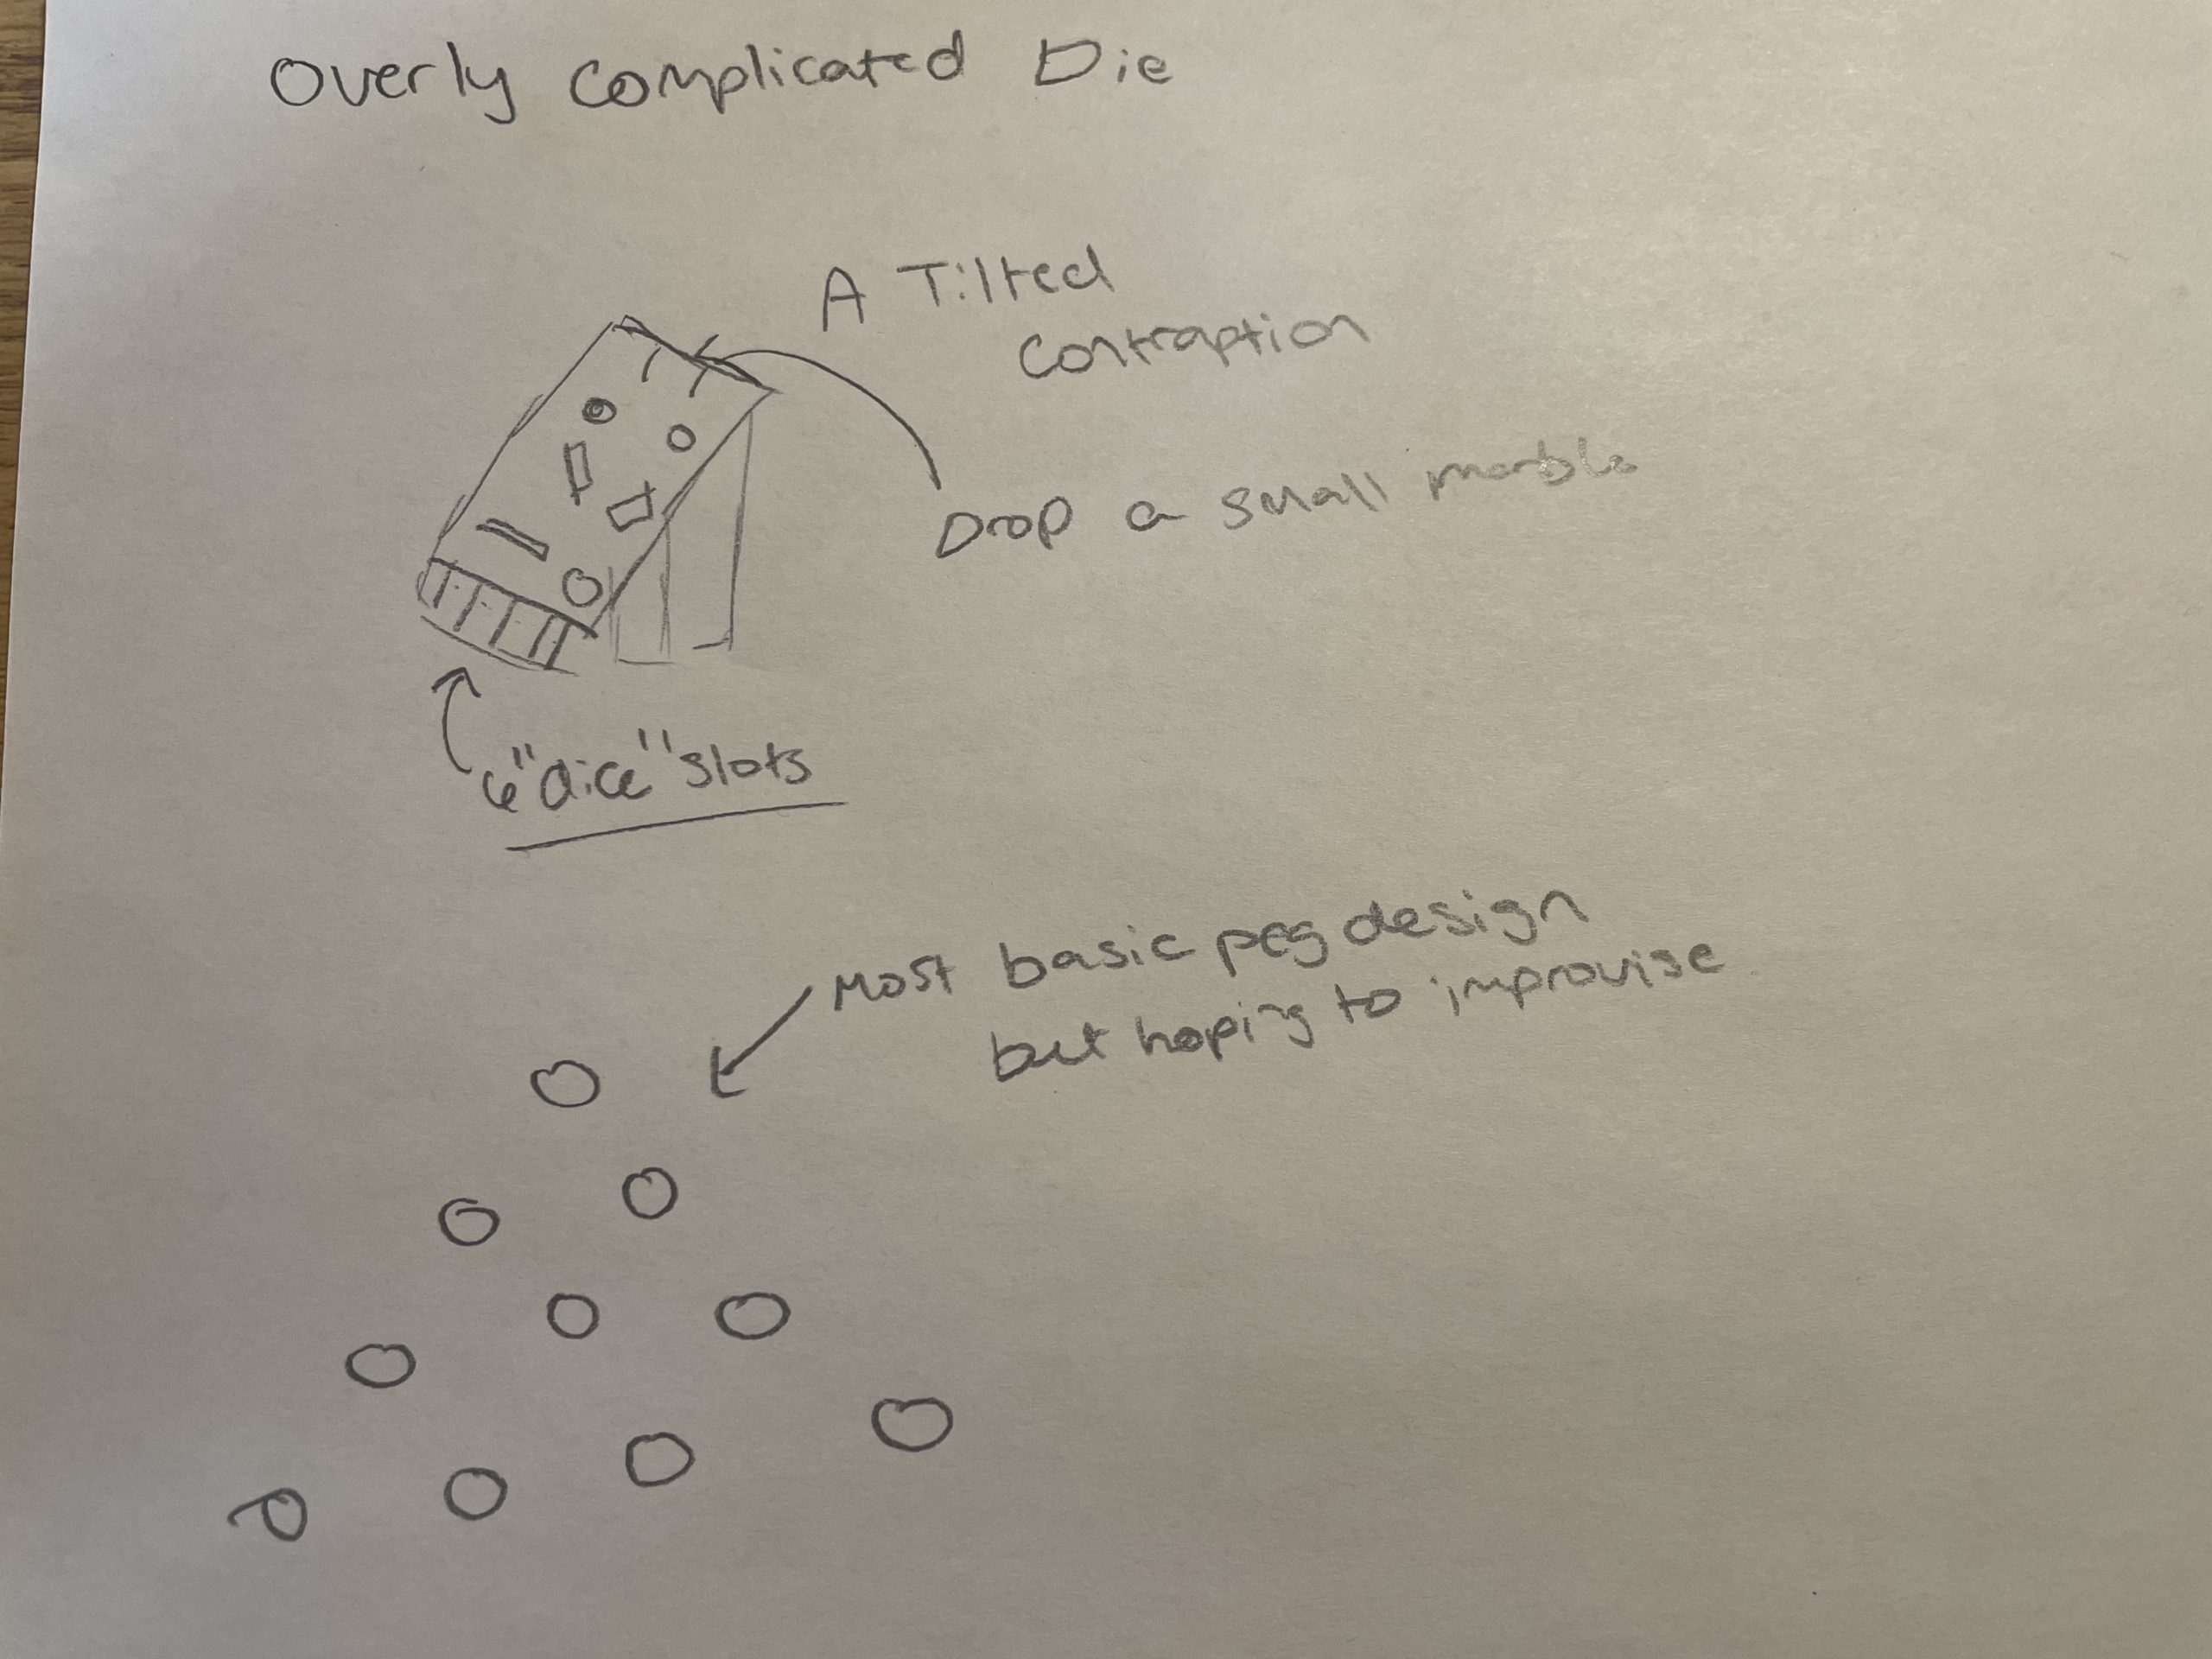 Overly Complicated Die
A Tilted
Contraption
Drop a small marble
6 "dice" slots
Most basic peg design
but hoping to improvise